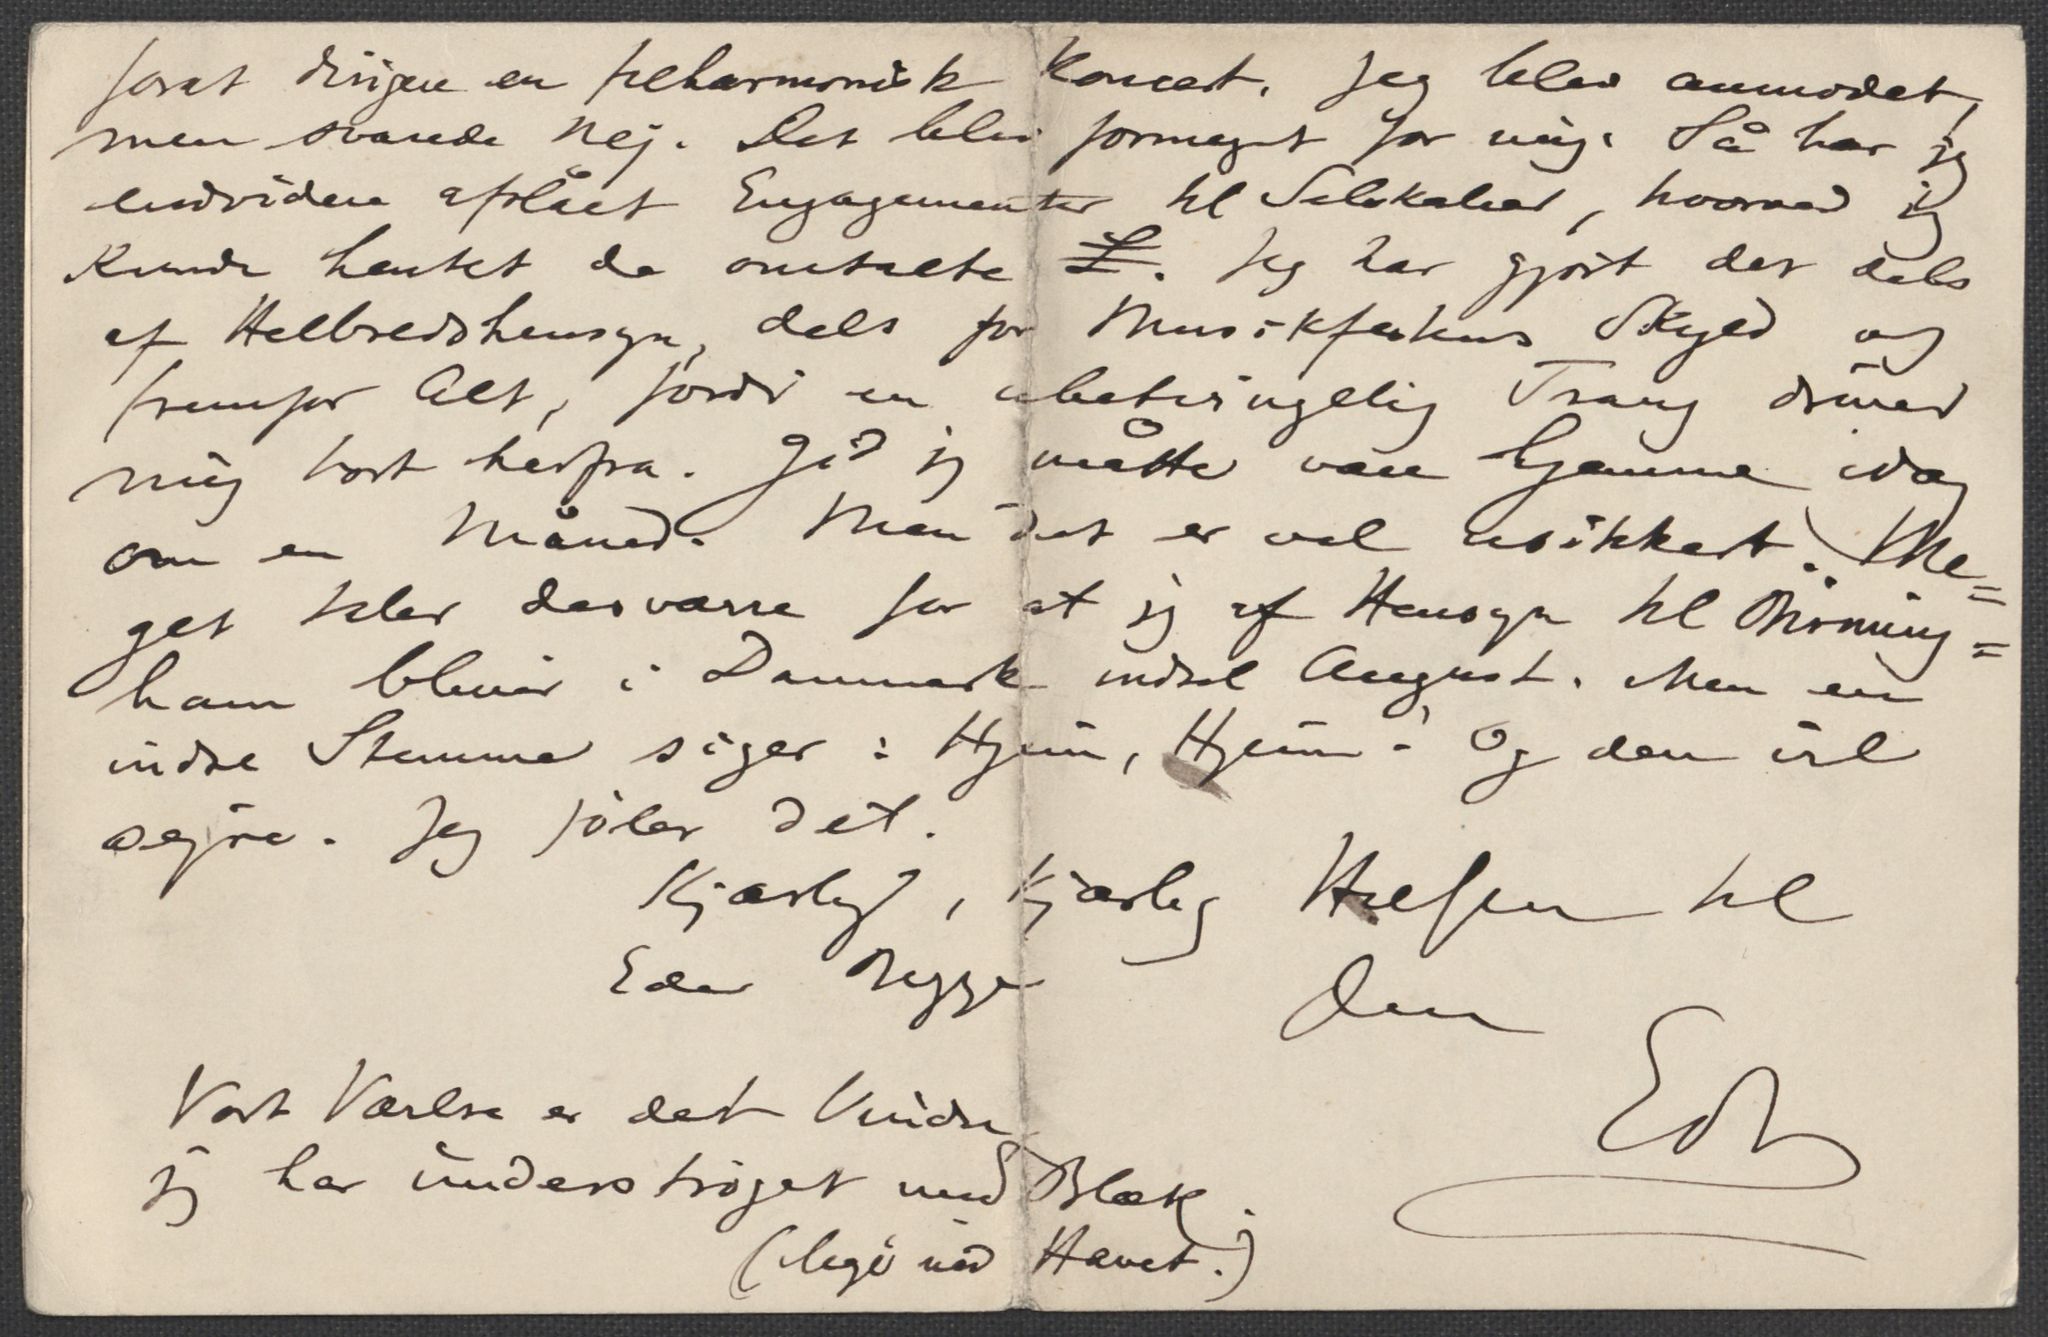 forat dirigere en filharmonisk Koncert. Jeg blev anmodet,
men svarede Nej. Det blev formeget for mig. Så har jeg
endvidere afslået Engagementer til Selskaber, hvorved jeg
kunde hentet de omtalte £. Jeg har gjort det dels
af Helbredshensyn, dels for Musikfestens Skyld og
fremfor Alt, fordi en ubetvingelig Trang driver
mig bort herfra. Gid jeg måtte være hjemme idag
om en Måned. Men det er vel usikkert. Me=
get taler desværre for at jeg af Hensyn til Birming=
ham bliver i Danmark indtil August. Men en
indre Stemme siger: Hjem, Hjem! Og den vil
sejre. Jeg føler det.
Kjærlig, kjærlig Hilsen til
Eder Begge
Din
Edv
Vort Værelse er det Vindu
jeg har understrøget med Blæk.
( ved Havet.)